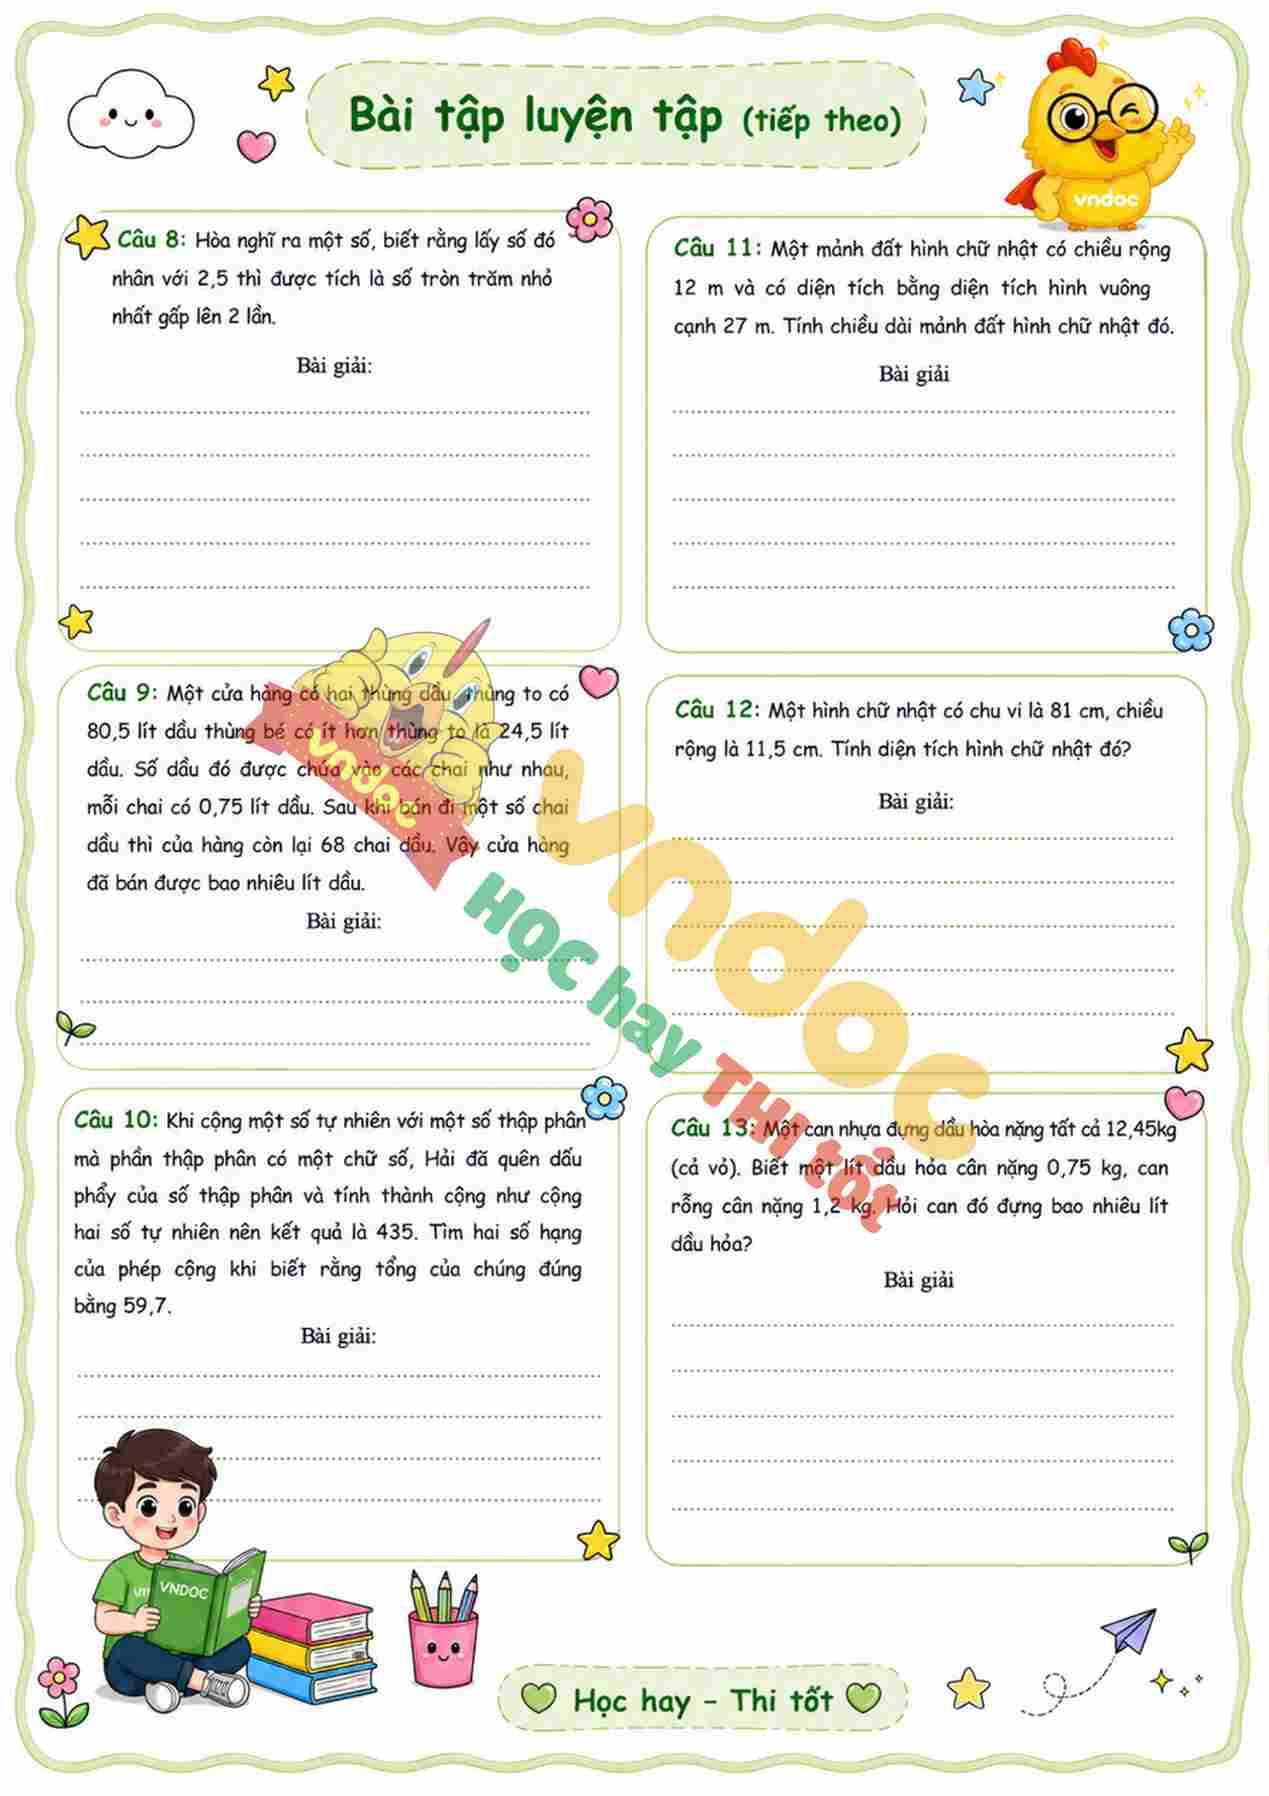 Bài tập luyện tập (tiếp theo)
vndoc
Câu 8: Hòa nghĩ ra một số, biết rằng lấy số đó
nhân với 2,5 thì được tích là số tròn trăm nhỏ
nhất gấp lên 2 lần.
Bài giải:
Câu 9: Một cửa hàng có hai thùng dầu, thùng to có
80,5 lít dầu thùng bé có ít hơn thùng to là 24,5 lít
dầu. Số dầu đó được chứa vào các chai như nhau,
mỗi chai có 0,75 lít dầu. Sau khi bán đi một số chai
dầu thì cửa hàng còn lại 68 chai dầu. Vậy cửa hàng
đã bán được bao nhiêu lít dầu.
Bài giải:
Câu 10: Khi cộng một số tự nhiên với một số thập phân
mà phần thập phân có một chữ số, Hải đã quên dấu
phẩy của số thập phân và tính thành cộng như cộng
hai số tự nhiên nên kết quả là 435. Tìm hai số hạng
của phép cộng khi biết rằng tổng của chúng đúng
bằng 59,7.
Bài giải:
Câu 11: Một mảnh đất hình chữ nhật có chiều rộng
12 m và có diện tích bằng diện tích hình vuông
cạnh 27 m. Tính chiều dài mảnh đất hình chữ nhật đó.
Bài giải
Câu 12: Một hình chữ nhật có chu vi là 81 cm, chiều
rộng là 11,5 cm. Tính diện tích hình chữ nhật đó?
Bài giải:
Câu 13: Một can nhựa đựng dầu hỏa nặng tất cả 12,45kg
(cả vỏ). Biết một lít dầu hỏa cân nặng 0,75 kg, can
rỗng cân nặng 1,2 kg. Hỏi can đó đựng bao nhiêu lít
dầu hỏa?
Bài giải
vndoc
vndoc
HỌC hay THI tốt
VNDOC
Học hay - Thi tốt